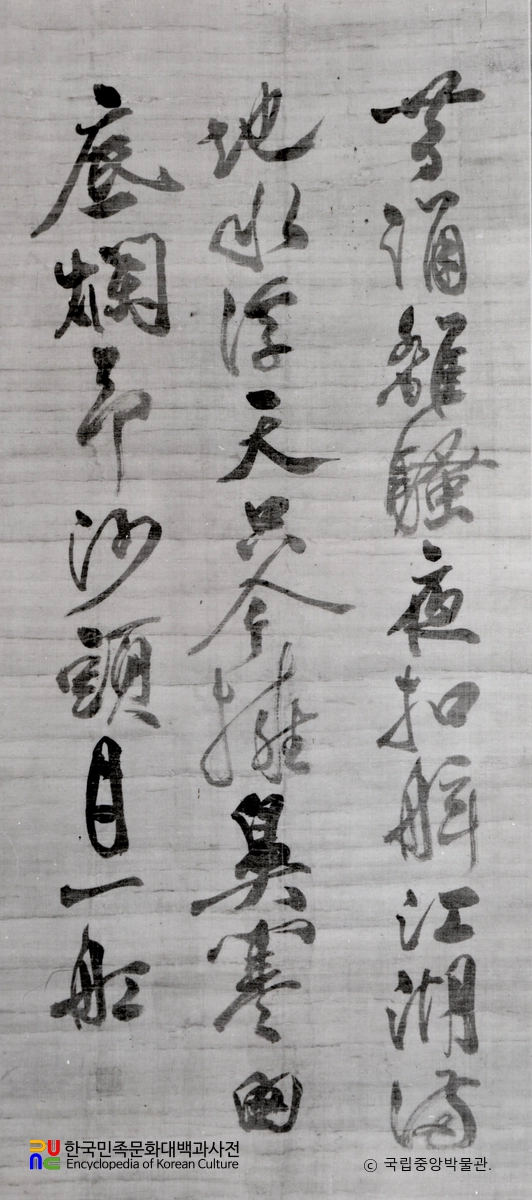 嘗誦離騷夜扣舷江湖滿
地水浮天只今擁鼻寒囱
底爛却沙頭月一船
한국민족문화대백과사전
Encyclopedia of Korean Culture
© 국립중앙박물관.